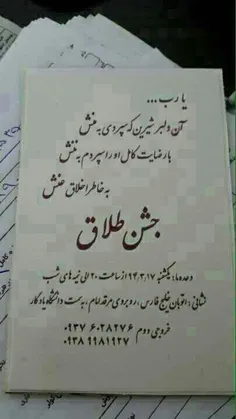 یا رب...
آن دلبر شیرین که سپردی به منش
با رضایت کامل او را سپردم به ننش
به خاطر اخلاق عنش
جشن طلاق
وعده ما: یکشنبه ۹۴،۳،۱۷ از ساعت ۲۰ الی نیمه های شب
نشانی: اتوبان خلیج فارس، روبروی مرقد امام، به سمت دانشگاه یادگار
خروجی دوم ۰۹۳۷ ۶۰۲۸۲۷۶
۰۹۳۸ ۹۹۸۱۹۲۷